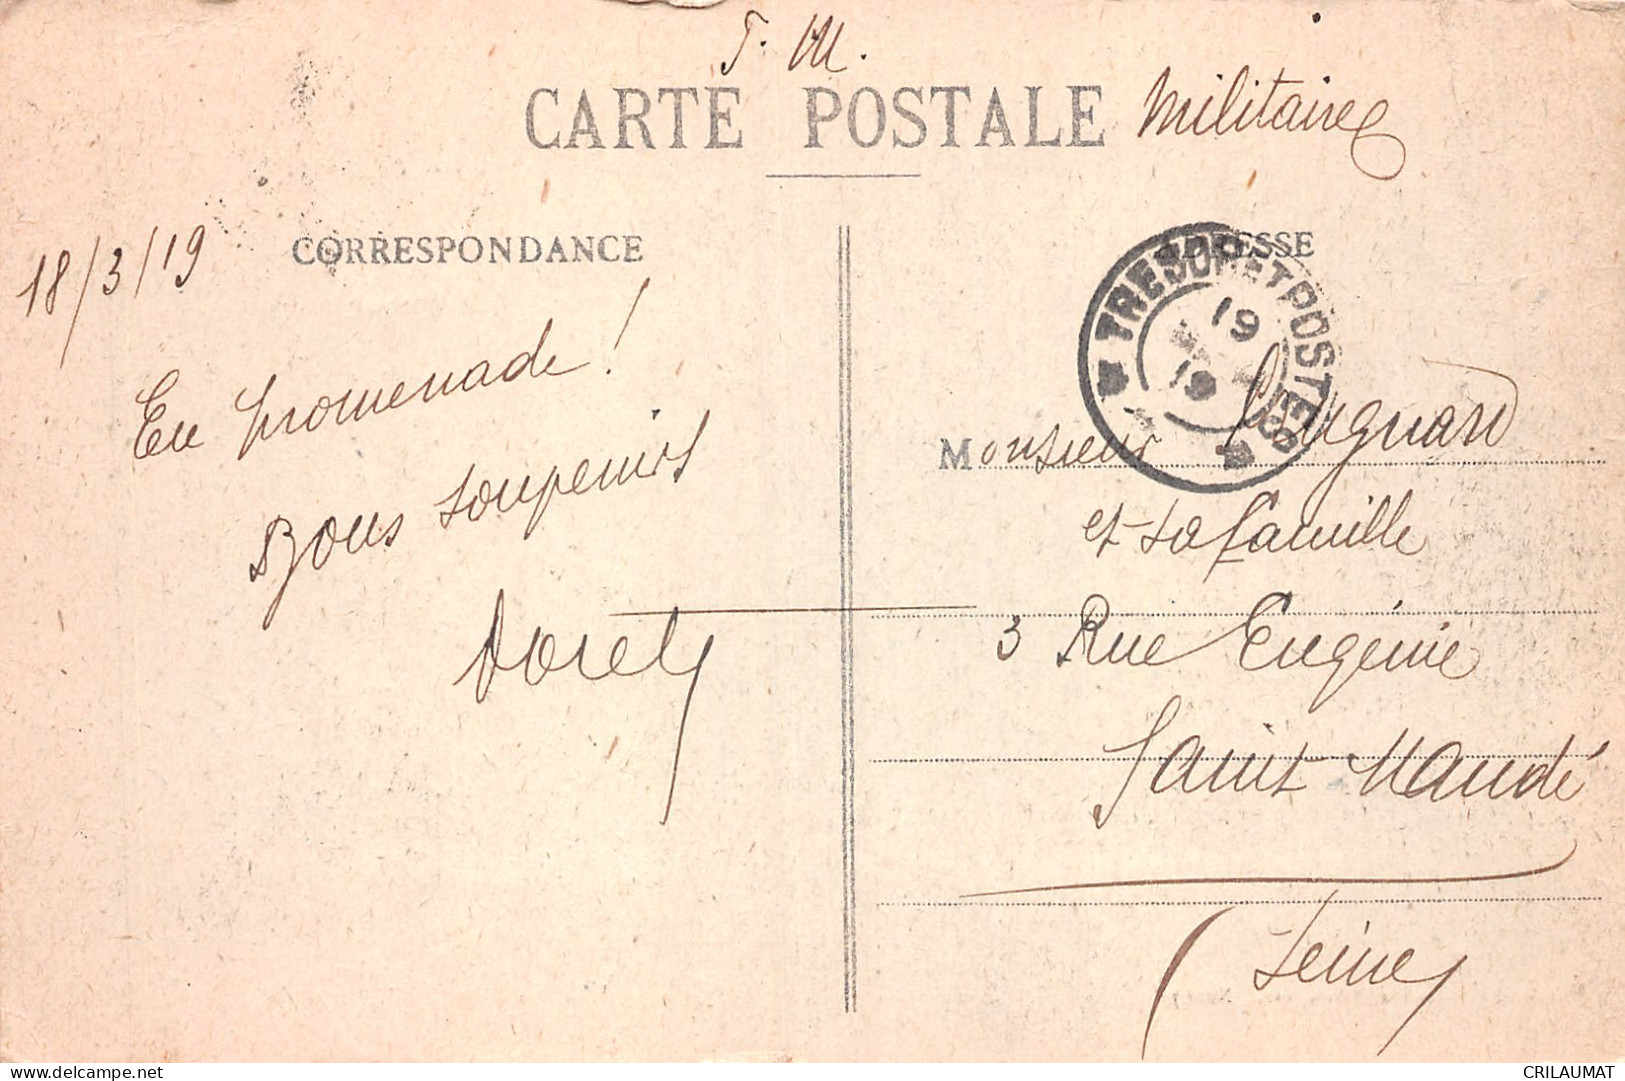 F. M.
CARTE POSTALE Militaire
18/3/19
CORRESPONDANCE
En promenade!
Bons souvenirs
ADRESSE
TRESOR ET POSTES
19
19
Monsieur
et sa famille
3 Rue Eugénie
Saint Mandé
(Seine)
delcampe.net
CRILAUMAT